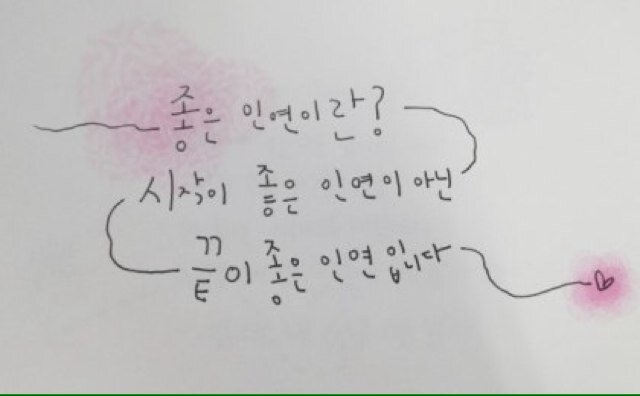 좋은 인연이란?
시작이 좋은 인연이 아닌
끝이 좋은 인연입니다